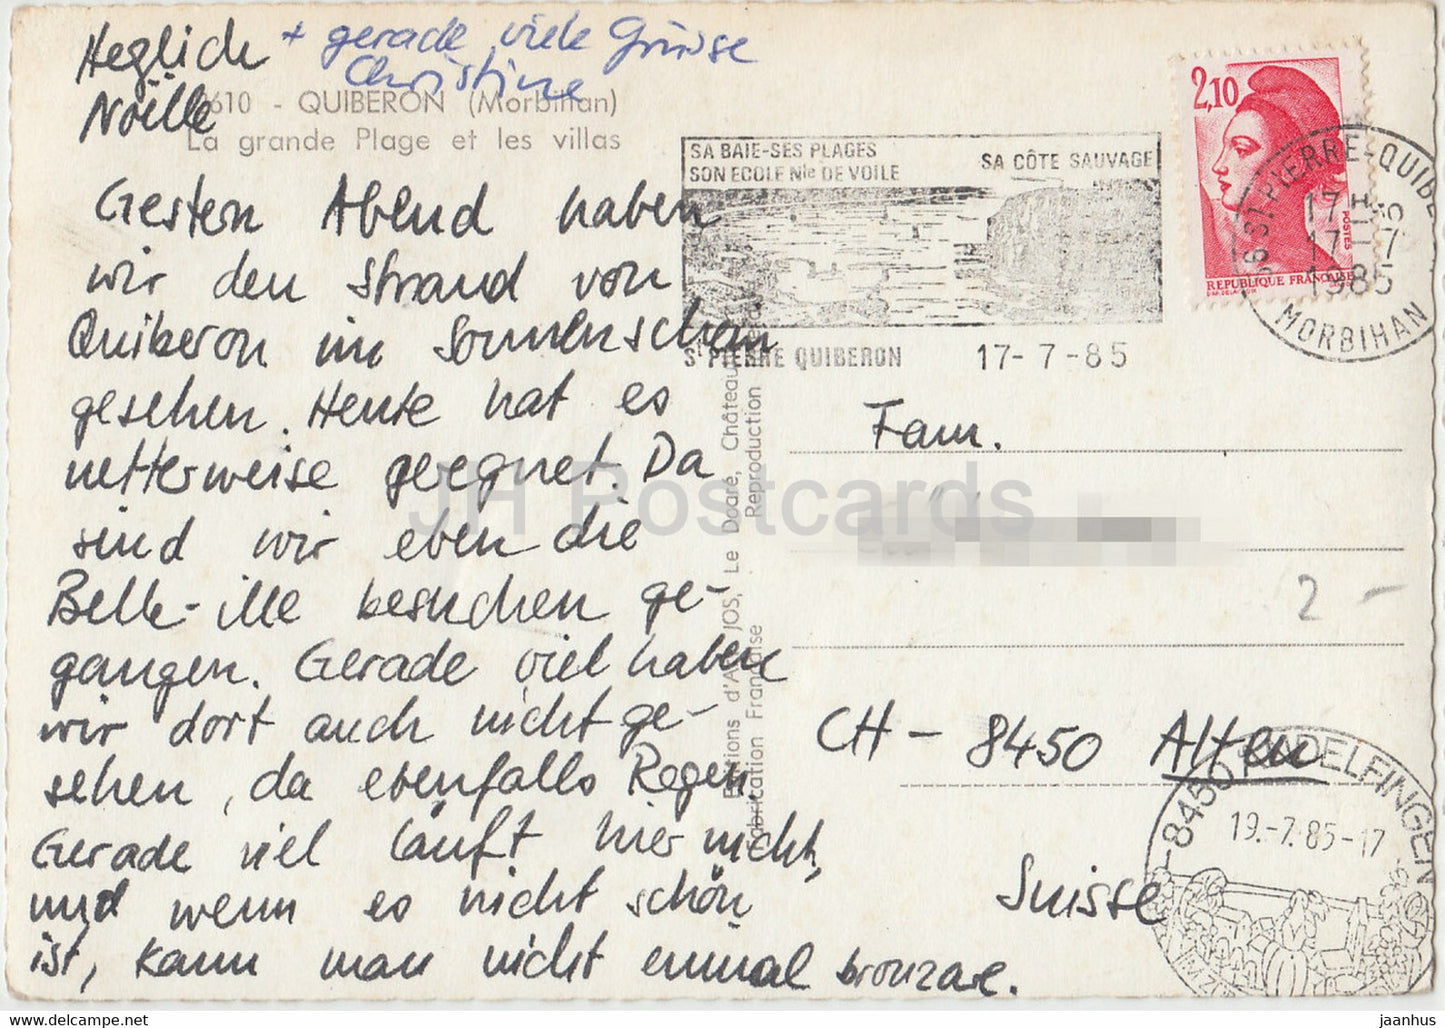 Heglich + gerade viele Grüsse
Christine
Noëlle
610 - QUIBERON (Morbihan)
La grande Plage et les villas
Gestern Abend haben
wir den Strand von
Quiberon im Sonnenschein
gesehen. Heute hat es
netterweise geregnet. Da
sind wir eben die
Belle-ille besuchen ge-
gangen. Gerade viel haben
wir dort auch nicht ge-
sehen, da ebenfalls Regen
Gerade viel läuft hier nicht,
und wenn es nicht schön
ist, kann man nicht einmal bronzare.
Editions d'Art JOS, Le Doaré, Châteaul
Fabrication Française Reproduction
SA BAIE-SES PLAGES
SON ECOLE Nle DE VOILE
SA CÔTE SAUVAGE
ST PIERRE QUIBERON 17-7-85
2,10
POSTES
REPUBLIQUE FRANÇAISE
56 ST PIERRE-QUIBE
17H
17-7
1985
MORBIHAN
Fam.
2 -
CH - 8450 Alten
Suisse
8450 ANDELFINGEN
19.-7.85-17
IM ZÜR
JH Postcards
jaanhus http://www.jaanhus.com